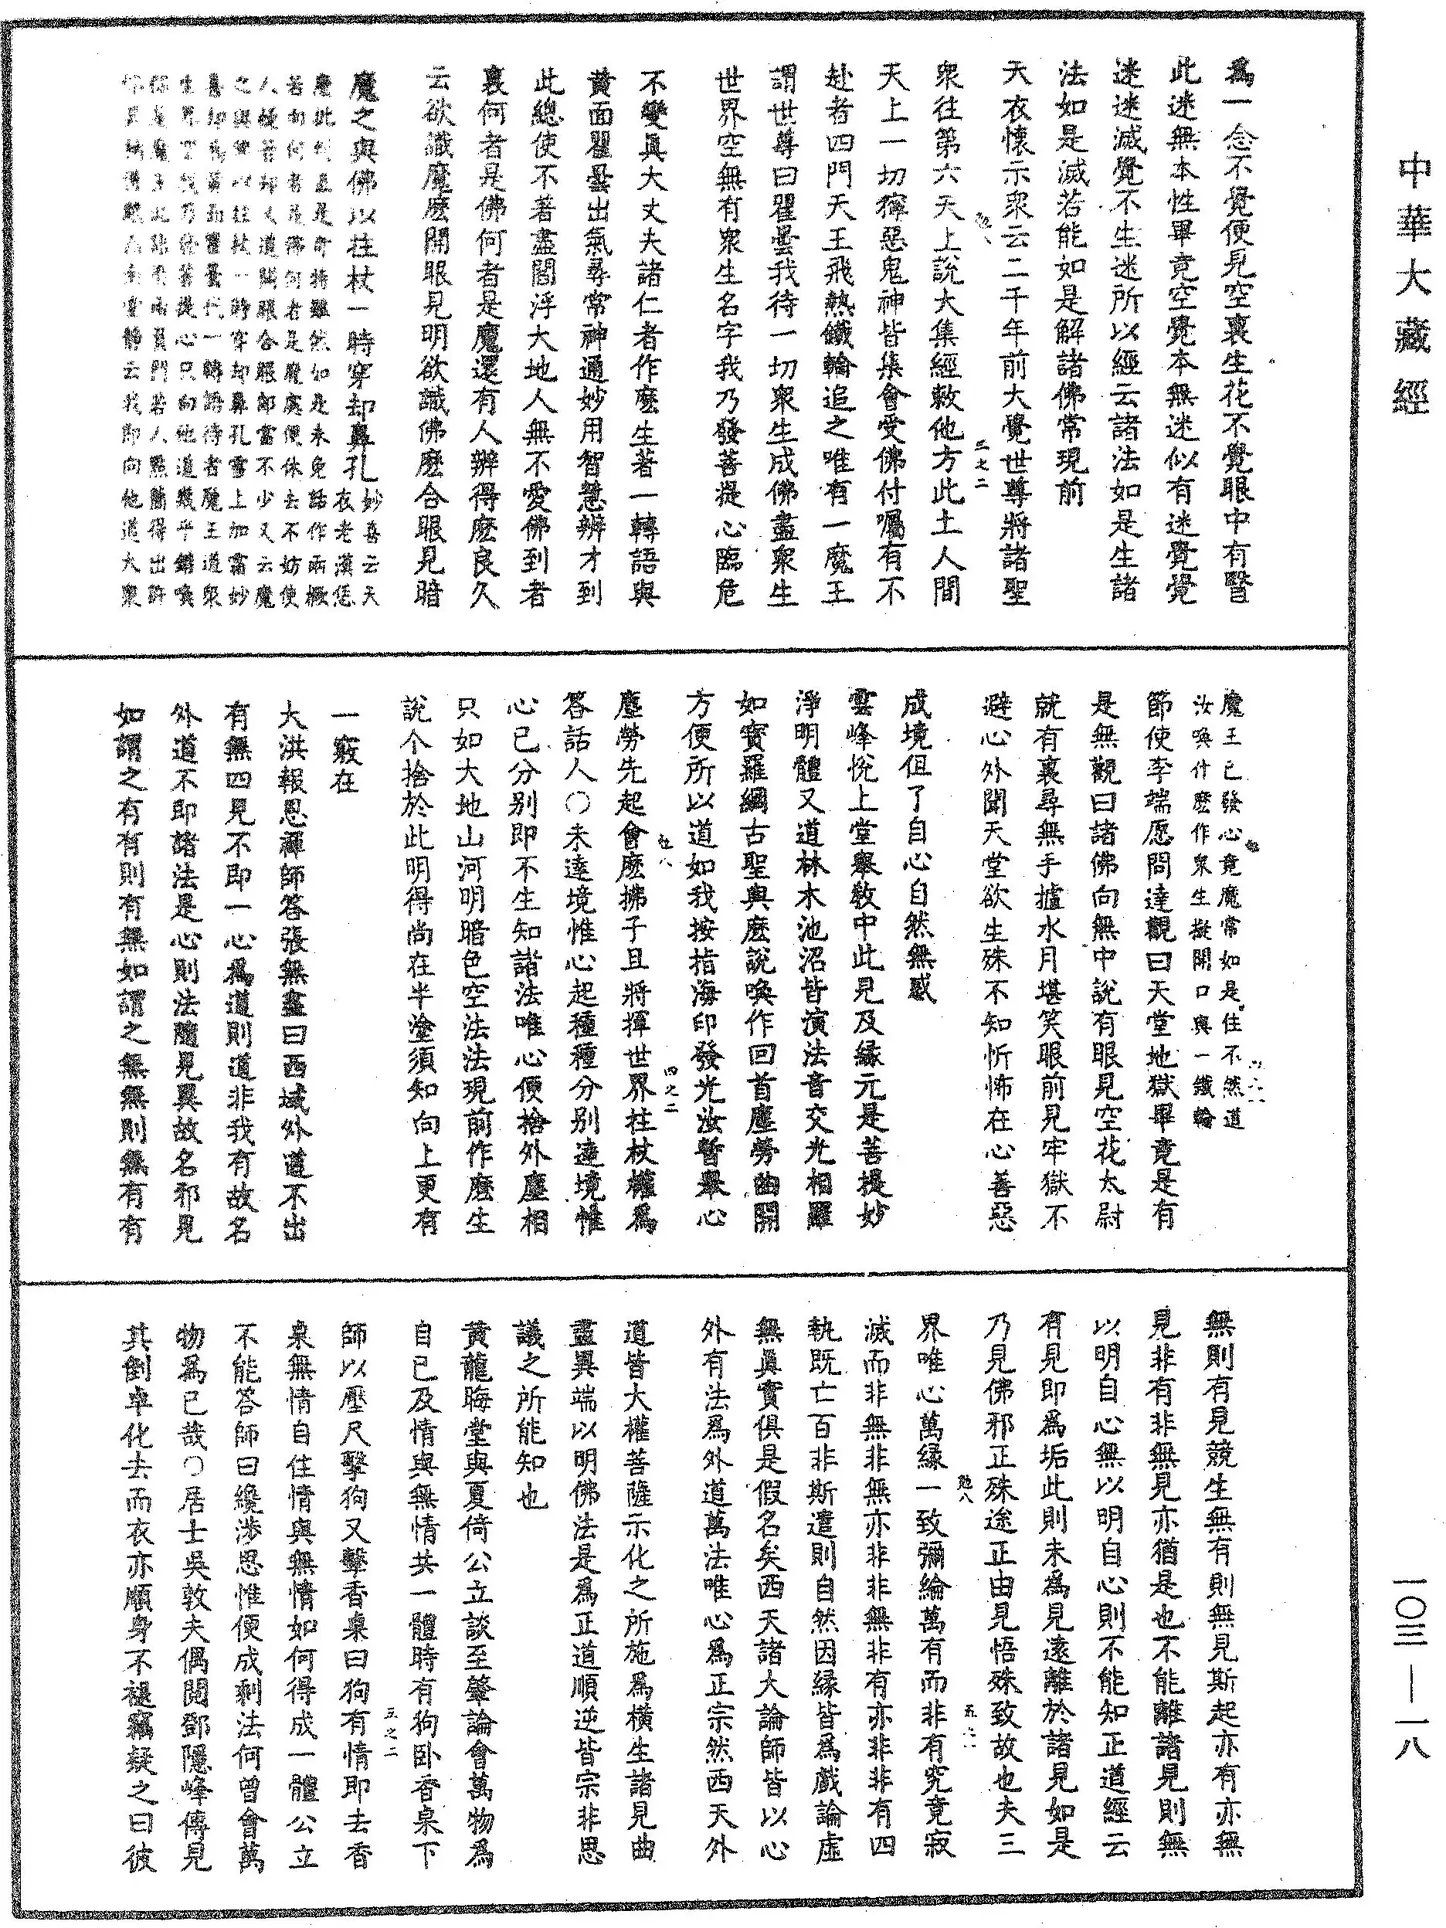 中華大藏經
為一念不覺便見空裏生花不覺眼中有翳
此迷無本性畢竟空覺本無迷似有迷覺覺
迷迷滅覺不生迷所以經云諸法如是生諸
法如是滅若能如是解諸佛常現前
天衣懷示眾云二千年前大覺世尊將諸聖
眾往第六天上說大集經敕他方此土人間
天上一切獰惡鬼神皆集會受佛付囑有不
赴者四門天王飛熱鐵輪追之唯有一魔王
謂世尊曰瞿曇我待一切眾生成佛盡眾生
世界空無有眾生名字我乃發菩提心臨危
不變真大丈夫諸仁者作麼生著一轉語與
黃面瞿曇出氣尋常神通妙用智慧辨才到
此總使不著盡閻浮大地人無不愛佛到者
裏何者是佛何者是魔還有人辦得麼良久
云欲識魔麼開眼見明欲識佛麼合眼見暗
魔之與佛以拄杖一時穿却鼻孔妙喜云天
衣老漢恁
麼批判直是奇特雖然如是未免話作兩橛
若向何者是佛何者是魔處便休去不妨使
人疑著却又道開眼合眼郎當不少又云魔
之與佛以拄杖一時穿却鼻孔雪上加霜妙
喜却為黃面瞿曇代一轉語待者魔王道眾
生界空我乃發菩提心只向他道幾乎錯喚
你作魔王此語有兩負門若人點檢得出許
你具衲僧眼
云我即向他道大眾
魔王已發心竟魔常如是住不然道
汝喚什麼作眾生擬開口與一鐵輪
節使李端愿問達觀曰天堂地獄畢竟是有
是無觀曰諸佛向無中說有眼見空花太尉
就有裏尋無手摣水月堪笑眼前見牢獄不
避心外聞天堂欲生殊不知忻怖在心善惡
成境但了自心自然無惑
雲峰悅上堂舉教中此見及緣元是菩提妙
淨明體又道林木池沼皆演法音交光相羅
如寶羅網古聖與麼說喚作回首塵勞曲開
方便所以道如我按指海印發光汝暫舉心
塵勞先起會麼拂子且將揮世界拄杖權為
答話人○未達境惟心起種種分別達境惟
心已分別即不生知諸法唯心便捨外塵相
只如大地山河明暗色空法法現前作麼生
說个捨於此明得尚在半塗須知向上更有
一竅在
大洪報恩禪師答張無盡曰西域外道不出
有無四見不即一心為道則道非我有故名
外道不即諸法是心則法隨見異故名邪見
如謂之有有則有無如謂之無無則無有有
無則有見競生無有則無見斯起亦有亦無
見非有非無見亦猶是也不能離諸見則無
以明自心無以明自心則不能知正道經云
有見即為垢此則未為見遠離於諸見如是
乃見佛邪正殊途正由見悟殊致故也夫三
界唯心萬緣一致彌綸萬有而非有究竟寂
滅而非無非無亦非非無非有亦非非有四
執既亡百非斯遣則自然因緣皆為戲論虛
無真實俱是假名矣西天諸大論師皆以心
外有法為外道萬法唯心為正宗然西天外
道皆大權菩薩示化之所施為橫生諸見曲
盡異端以明佛法是為正道順逆皆宗非思
議之所能知也
黃龍晦堂與夏倚公立談至肇論會萬物為
自已及情與無情共一體時有狗臥香桌下
師以壓尺擊狗又擊香桌曰狗有情即去香
桌無情自住情與無情如何得成一體公立
不能答師曰纔涉思惟便成剩法何曾會萬
物為已哉○居士吳敦夫偶閱鄧隱峰傳見
其倒卓化去而衣亦順身不褪竊疑之曰彼
一〇三—一八